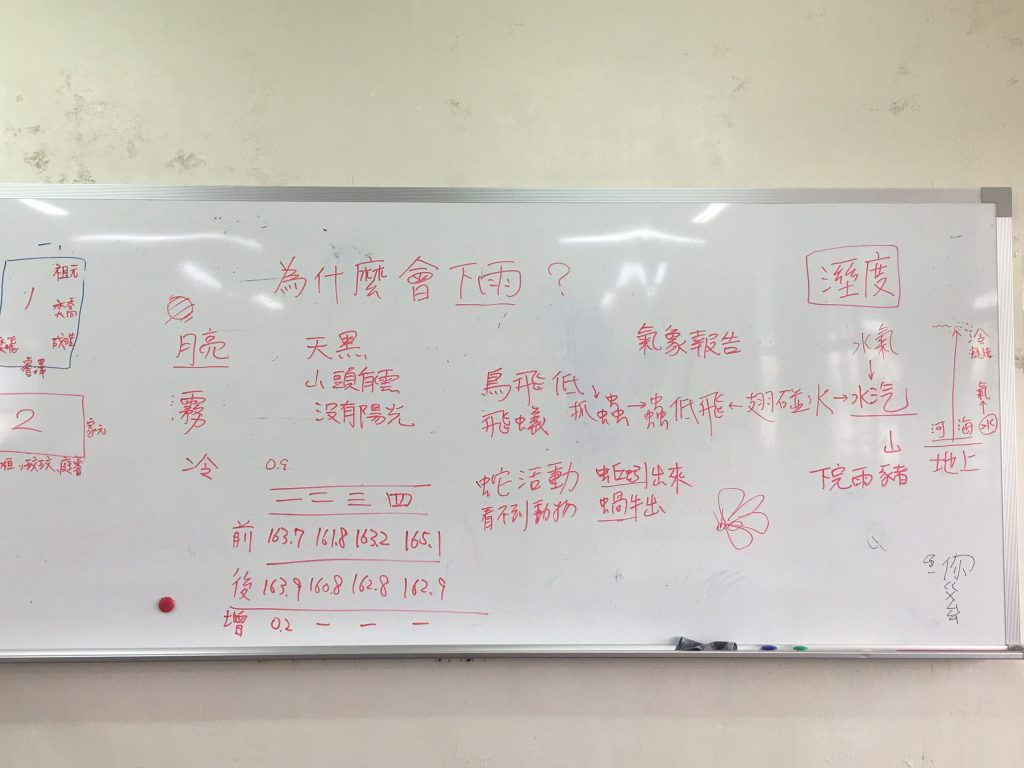 為什麼會下雨？
溼度
一,
1
祖元
睿澤
2
家元
月亮
霧
冷
天黑
山頭有雲
沒有陽光
0.9
一 二 三 四
前 163.7 161.8 163.2 165.1
後 163.9 160.8 162.8 162.9
增 0.2 — — —
氣象報告
鳥飛低
飛蟻
抓→蟲→蟲低飛←翅碰水→水汽
蛇活動 蚯蚓出來
看不到動物 蝸牛出
水氣
↓
山
下完雨豬
冷
凝結
氣
河 海 水
地上
你